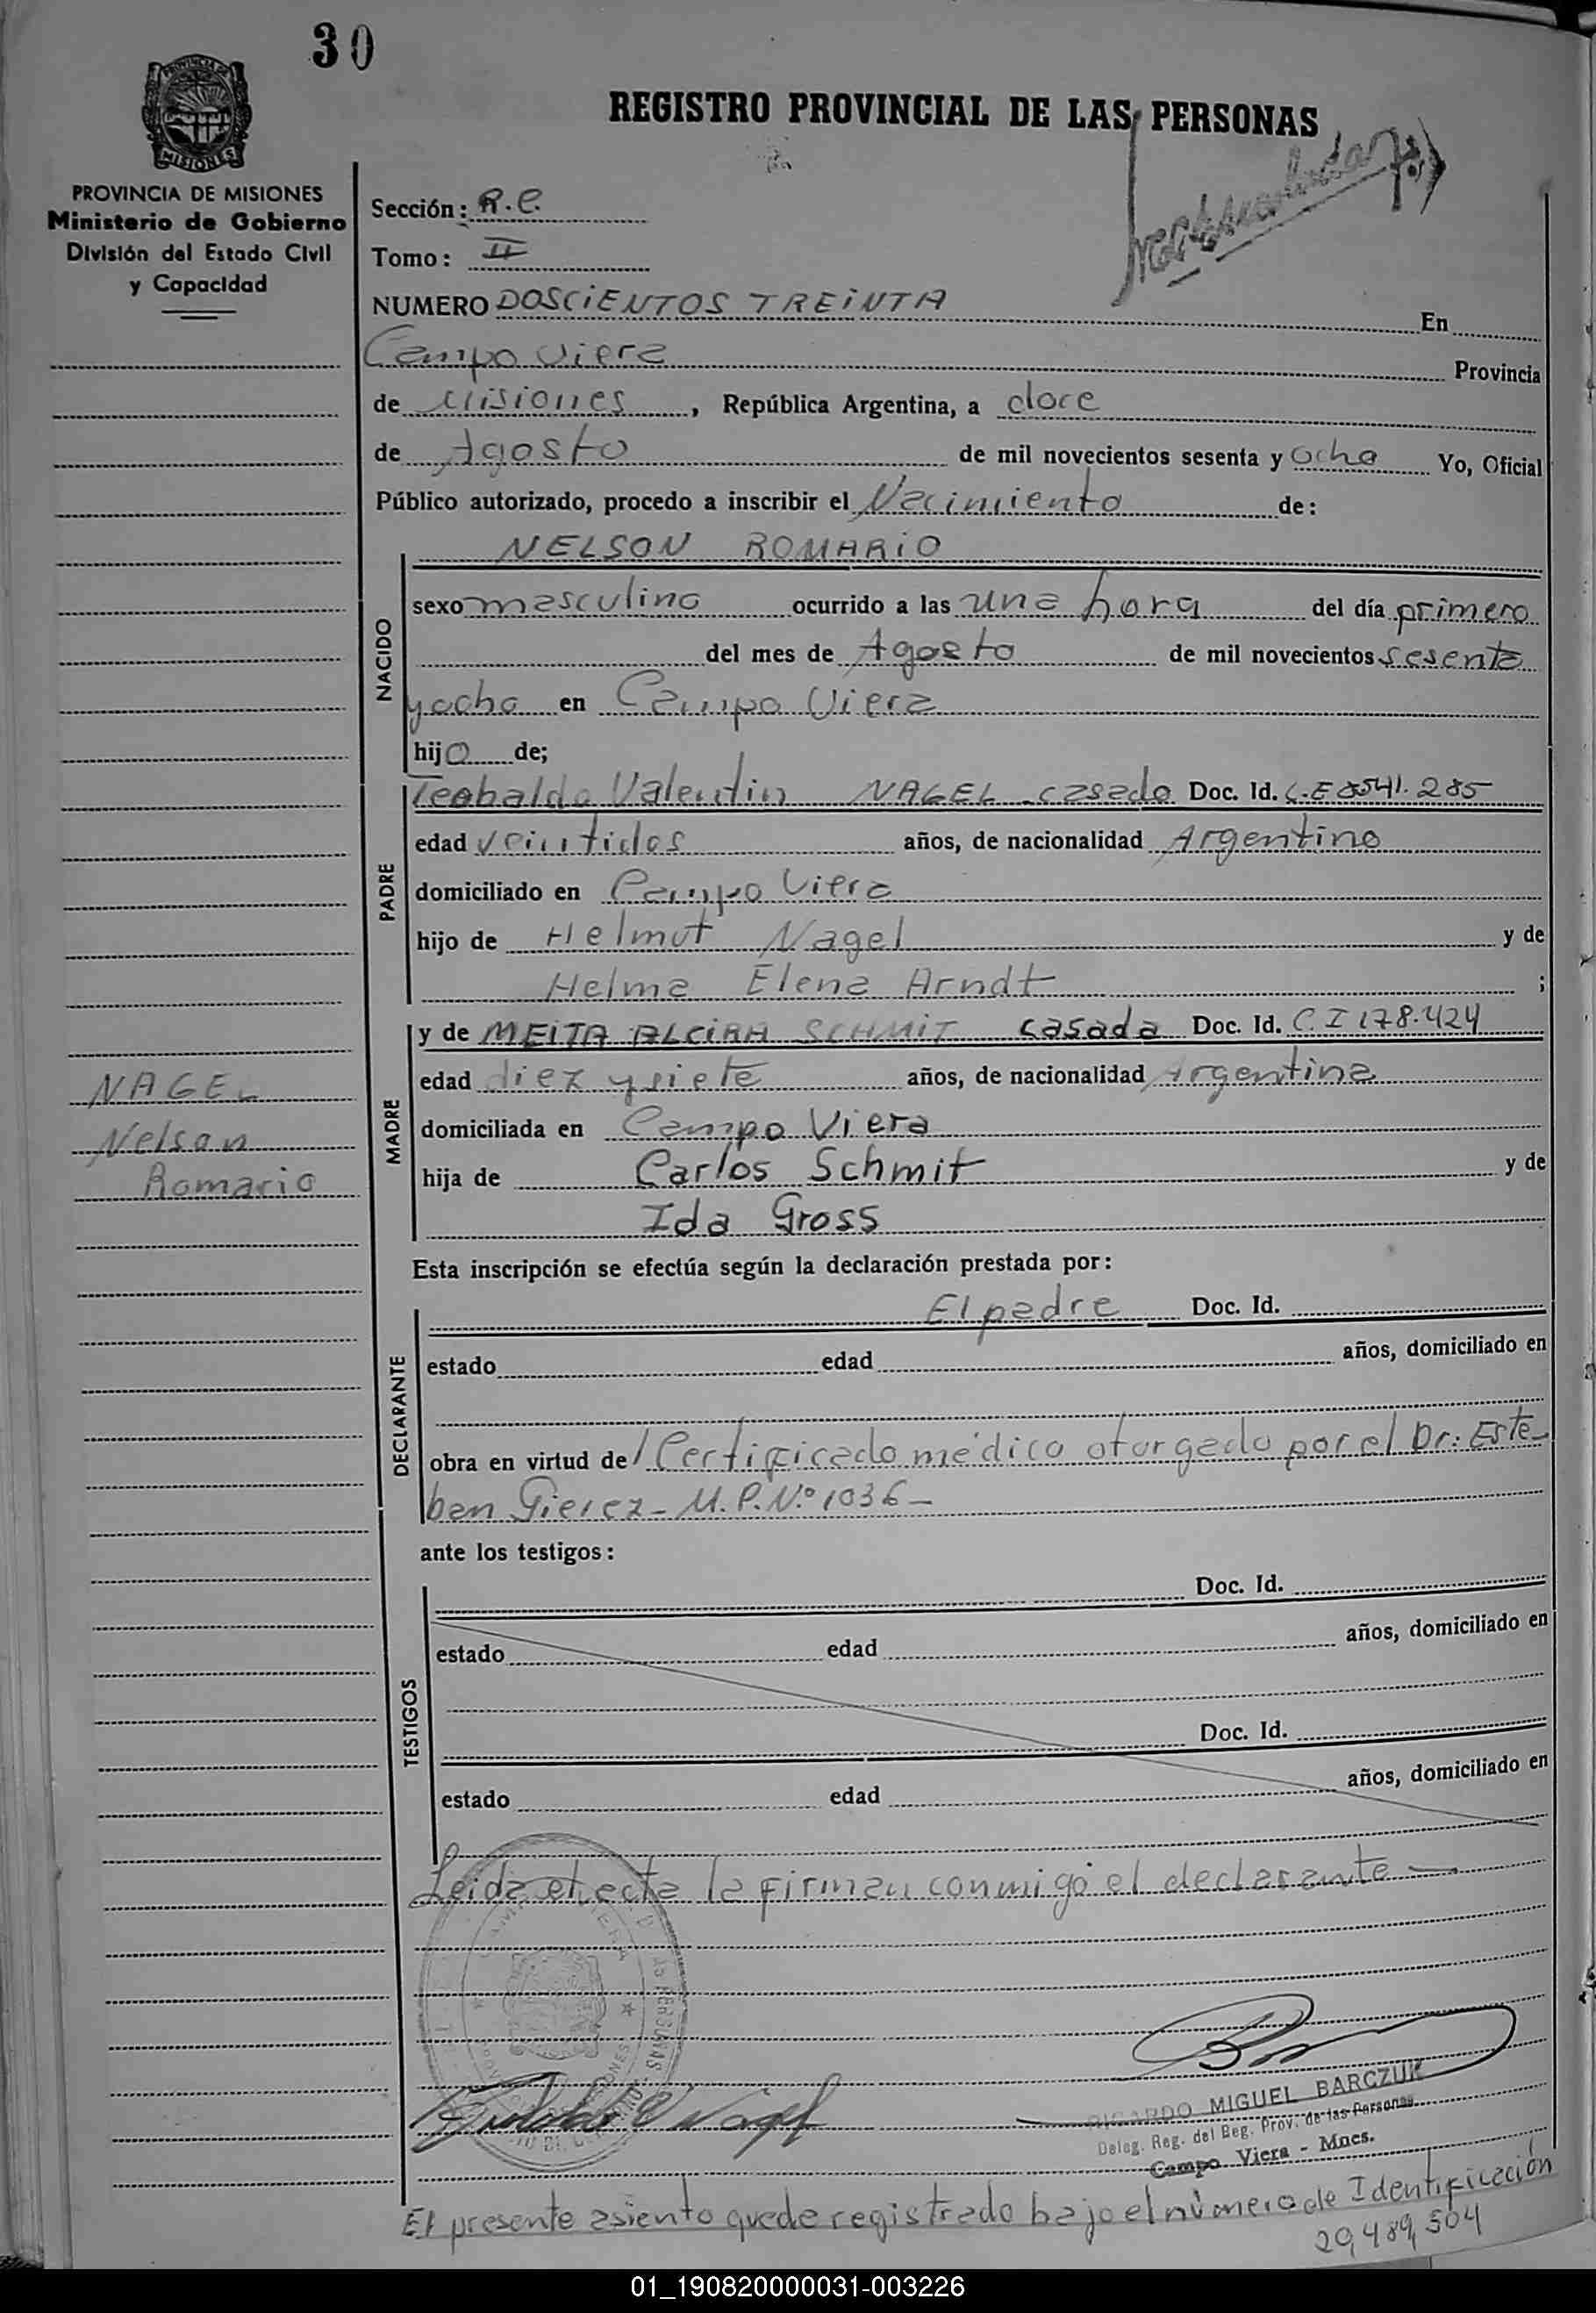 30
REGISTRO PROVINCIAL DE LAS PERSONAS
PROVINCIA DE MISIONES
Ministerio de Gobierno
División del Estado Civil
y Capacidad
Sección: R.C.
Tomo: II
NUMERO DOSCIENTOS TREINTA En
Campo Viera Provincia
de Misiones, República Argentina, a doce
de Agosto de mil novecientos sesenta y ocho Yo, Oficial
Público autorizado, procedo a inscribir el Nacimiento de:
NACIDO
NELSON ROMARIO
sexo masculino ocurrido a las una hora del día primero
del mes de Agosto de mil novecientos sesenta
y ocho en Campo Viera
hijo de;
PADRE
Teobaldo Valentin NAGEL casado Doc. Id. L.E 8541.285
edad veintidos años, de nacionalidad Argentino
domiciliado en Campo Viera
hijo de Helmut Nagel y de
Helma Elena Arndt ;
MADRE
y de MEITA ALCIRA SCHMIT casada Doc. Id. C.I 178.424
edad diez y siete años, de nacionalidad Argentina
domiciliada en Campo Viera
hija de Carlos Schmit y de
Ida Gross
NAGEL
Nelson
Romario
Esta inscripción se efectúa según la declaración prestada por:
DECLARANTE
El padre Doc. Id.
estado edad años, domiciliado en
obra en virtud de Certificado médico otorgado por el Dr: Este-
ban Gierez - M.P. Nº 1036 -
ante los testigos:
TESTIGOS
Doc. Id.
estado edad años, domiciliado en
Doc. Id.
estado edad años, domiciliado en
Leida el acta la firman conmigo el declarante
RICARDO MIGUEL BARCZUK
Deleg. Reg. del Reg. Prov. de las Personas
Campo Viera - Mnes.
El presente asiento queda registrado bajo el número de Identificación
20,489,504
01_190820000031-003226